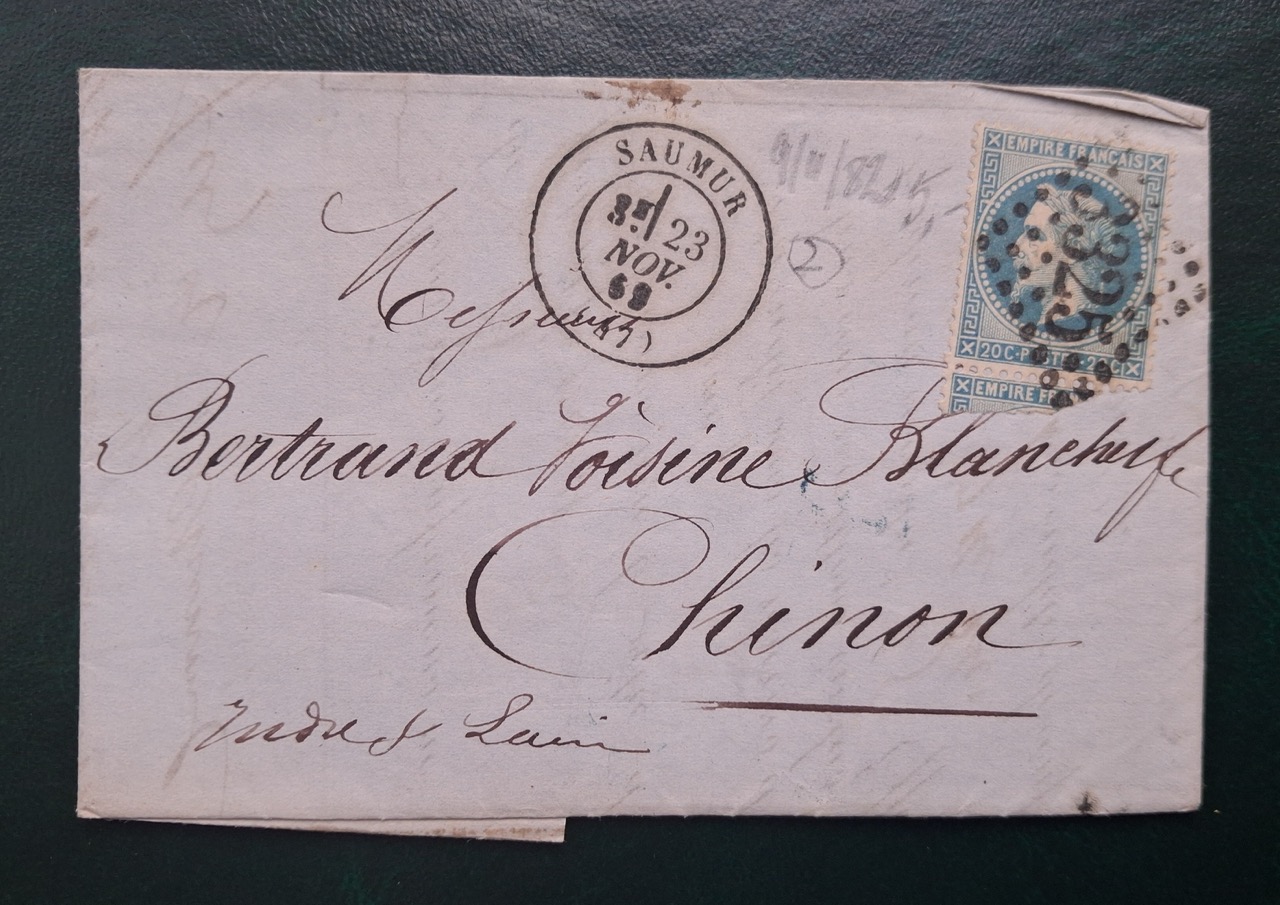 SAUMUR
23
NOV.
69
9/11/82 15,-
2
EMPIRE FRANCAIS
3325
20 C·POSTES·20 C
EMPIRE FRA
Messieurs
Bertrand Voisine
Chinon
Indre & Loire